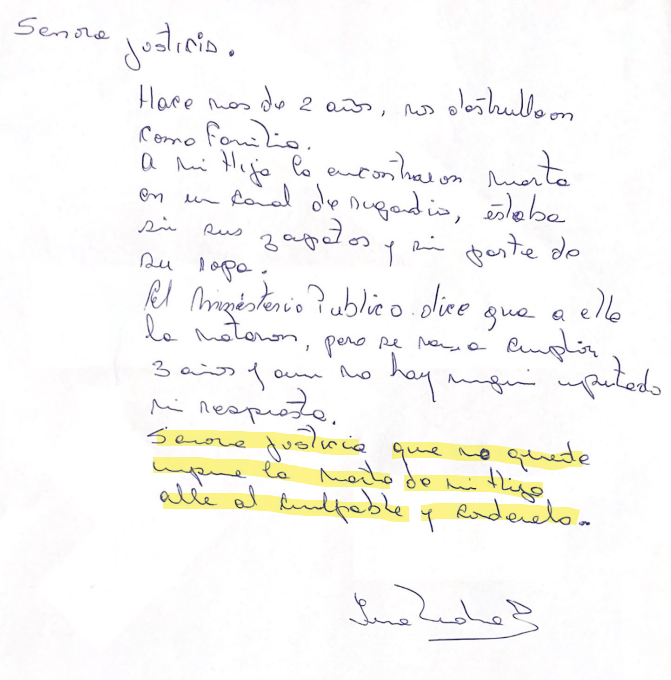 Senora justicia.
Hace mas de 2 años, nos destrulleon
como Familia.
A mi Hija la encontraron muerta
en un canal de regadio, estaba
sin sus zapatos y sin parte de
su ropa.
El Ministerio Publico dice que a ella
la mataron, pero se van a cumplir
3 años y aun no hay ningun imputado
ni respuesta.
Senora justicia que no quede
impune la muerte de mi Hija
alle al culpable y condenelo.